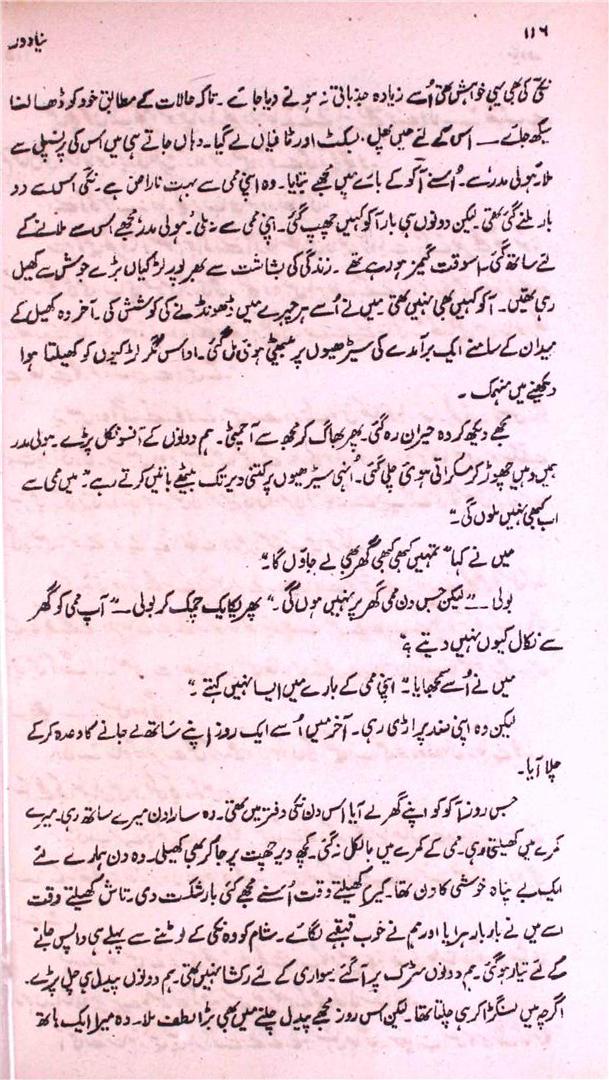 ۱۱۶
نیا دور
نکی کی بھی یہی خواہش تھی اُسے زیادہ جذباتی نہ ہونے دیا جائے۔ تاکہ حالات کے مطابق خود کو ڈھالنا
سیکھ جائے — اس کے لئے میں پھل، بسکٹ اور ٹافیاں لے گیا۔ وہاں جاتے ہی میں اس کی پرنسپل سے
ملا۔ ہولی مدر سے۔ اُسنے آکو کے بارے میں مجھے بتایا۔ وہ اپنی ممی سے بہت ناراض ہے۔ نکی اس سے دو
بار ملنے گئی تھی۔ لیکن دونوں ہی بار آکو کہیں چھپ گئی۔ اپنی ممی سے نہ ملی۔ ہولی مدر مجھے اس سے ملانے کے
لئے ساتھ گئی۔ اسوقت گیمز ہو رہے تھے۔ زندگی کی بشاشت سے بھرپور لڑکیاں بڑے جوش سے کھیل
رہی تھیں۔ آکو کہیں بھی نہیں تھی۔ میں نے اُسے ہر چہرے میں ڈھونڈنے کی کوشش کی۔ آخر وہ کھیل کے
میدان کے سامنے ایک برآمدے کی سیڑھیوں پر بیٹھی ہوئی مل گئی۔ اداس مگر لڑکیوں کو کھیلتا ہوا
دیکھنے میں منہمک۔
مجھے دیکھ کر وہ حیران رہ گئی۔ پھر بھاگ کر مجھ سے آ چمٹی۔ ہم دونوں کے آنسو نکل پڑے۔ ہولی مدر
ہمیں وہیں چھوڑ کر مسکراتی ہوئی چلی گئی۔ اُنہی سیڑھیوں پر کتنی دیر تک بیٹھے باتیں کرتے رہے۔ "میں ممی سے
اب کبھی نہیں ملوں گی۔"
میں نے کہا "تمہیں کبھی کبھی گھر بھی لے جاؤں گا۔"
بولی — "لیکن جس دن ممی گھر پر نہیں ہوں گی۔" پھر یکایک چمک کر بولی — "آپ ممی کو گھر
سے نکال کیوں نہیں دیتے؟"
میں نے اُسے سمجھایا "اپنی ممی کے بارے میں ایسا نہیں کہتے۔"
لیکن وہ اپنی ضد پر اڑی رہی۔ آخر میں اُسے ایک روز اپنے ساتھ لے جانے کا وعدہ کر کے
چلا آیا۔
جس روز آکو کو اپنے گھر لے آیا اُس دن نکی دفتر میں تھی۔ وہ سارا دن میرے ساتھ رہی۔ میرے
کمرے میں کھیلتی رہی۔ ممی کے کمرے میں بالکل نہ گئی۔ کچھ دیر چھت پر جا کر بھی کھیلی۔ وہ دن ہمارے لئے
ایک بے پناہ خوشی کا دن تھا۔ کیرم کھیلتے وقت اُسنے مجھے کئی بار شکست دی۔ تاش کھیلتے وقت
اسے میں نے بار بار ہرایا اور ہم نے خوب قہقہے لگائے۔ شام کو وہ نکی کے لوٹنے سے پہلے ہی واپس جانے
کے لئے تیار ہو گئی۔ ہم دونوں سڑک پر آ گئے۔ سواری کے لئے رکشا نہیں تھی۔ ہم دونوں پیدل ہی چل پڑے۔
اگرچہ میں لنگڑا کر ہی چلتا تھا۔ لیکن اس روز مجھے پیدل چلنے میں بھی بڑا لطف ملا۔ وہ میرا ایک ہاتھ